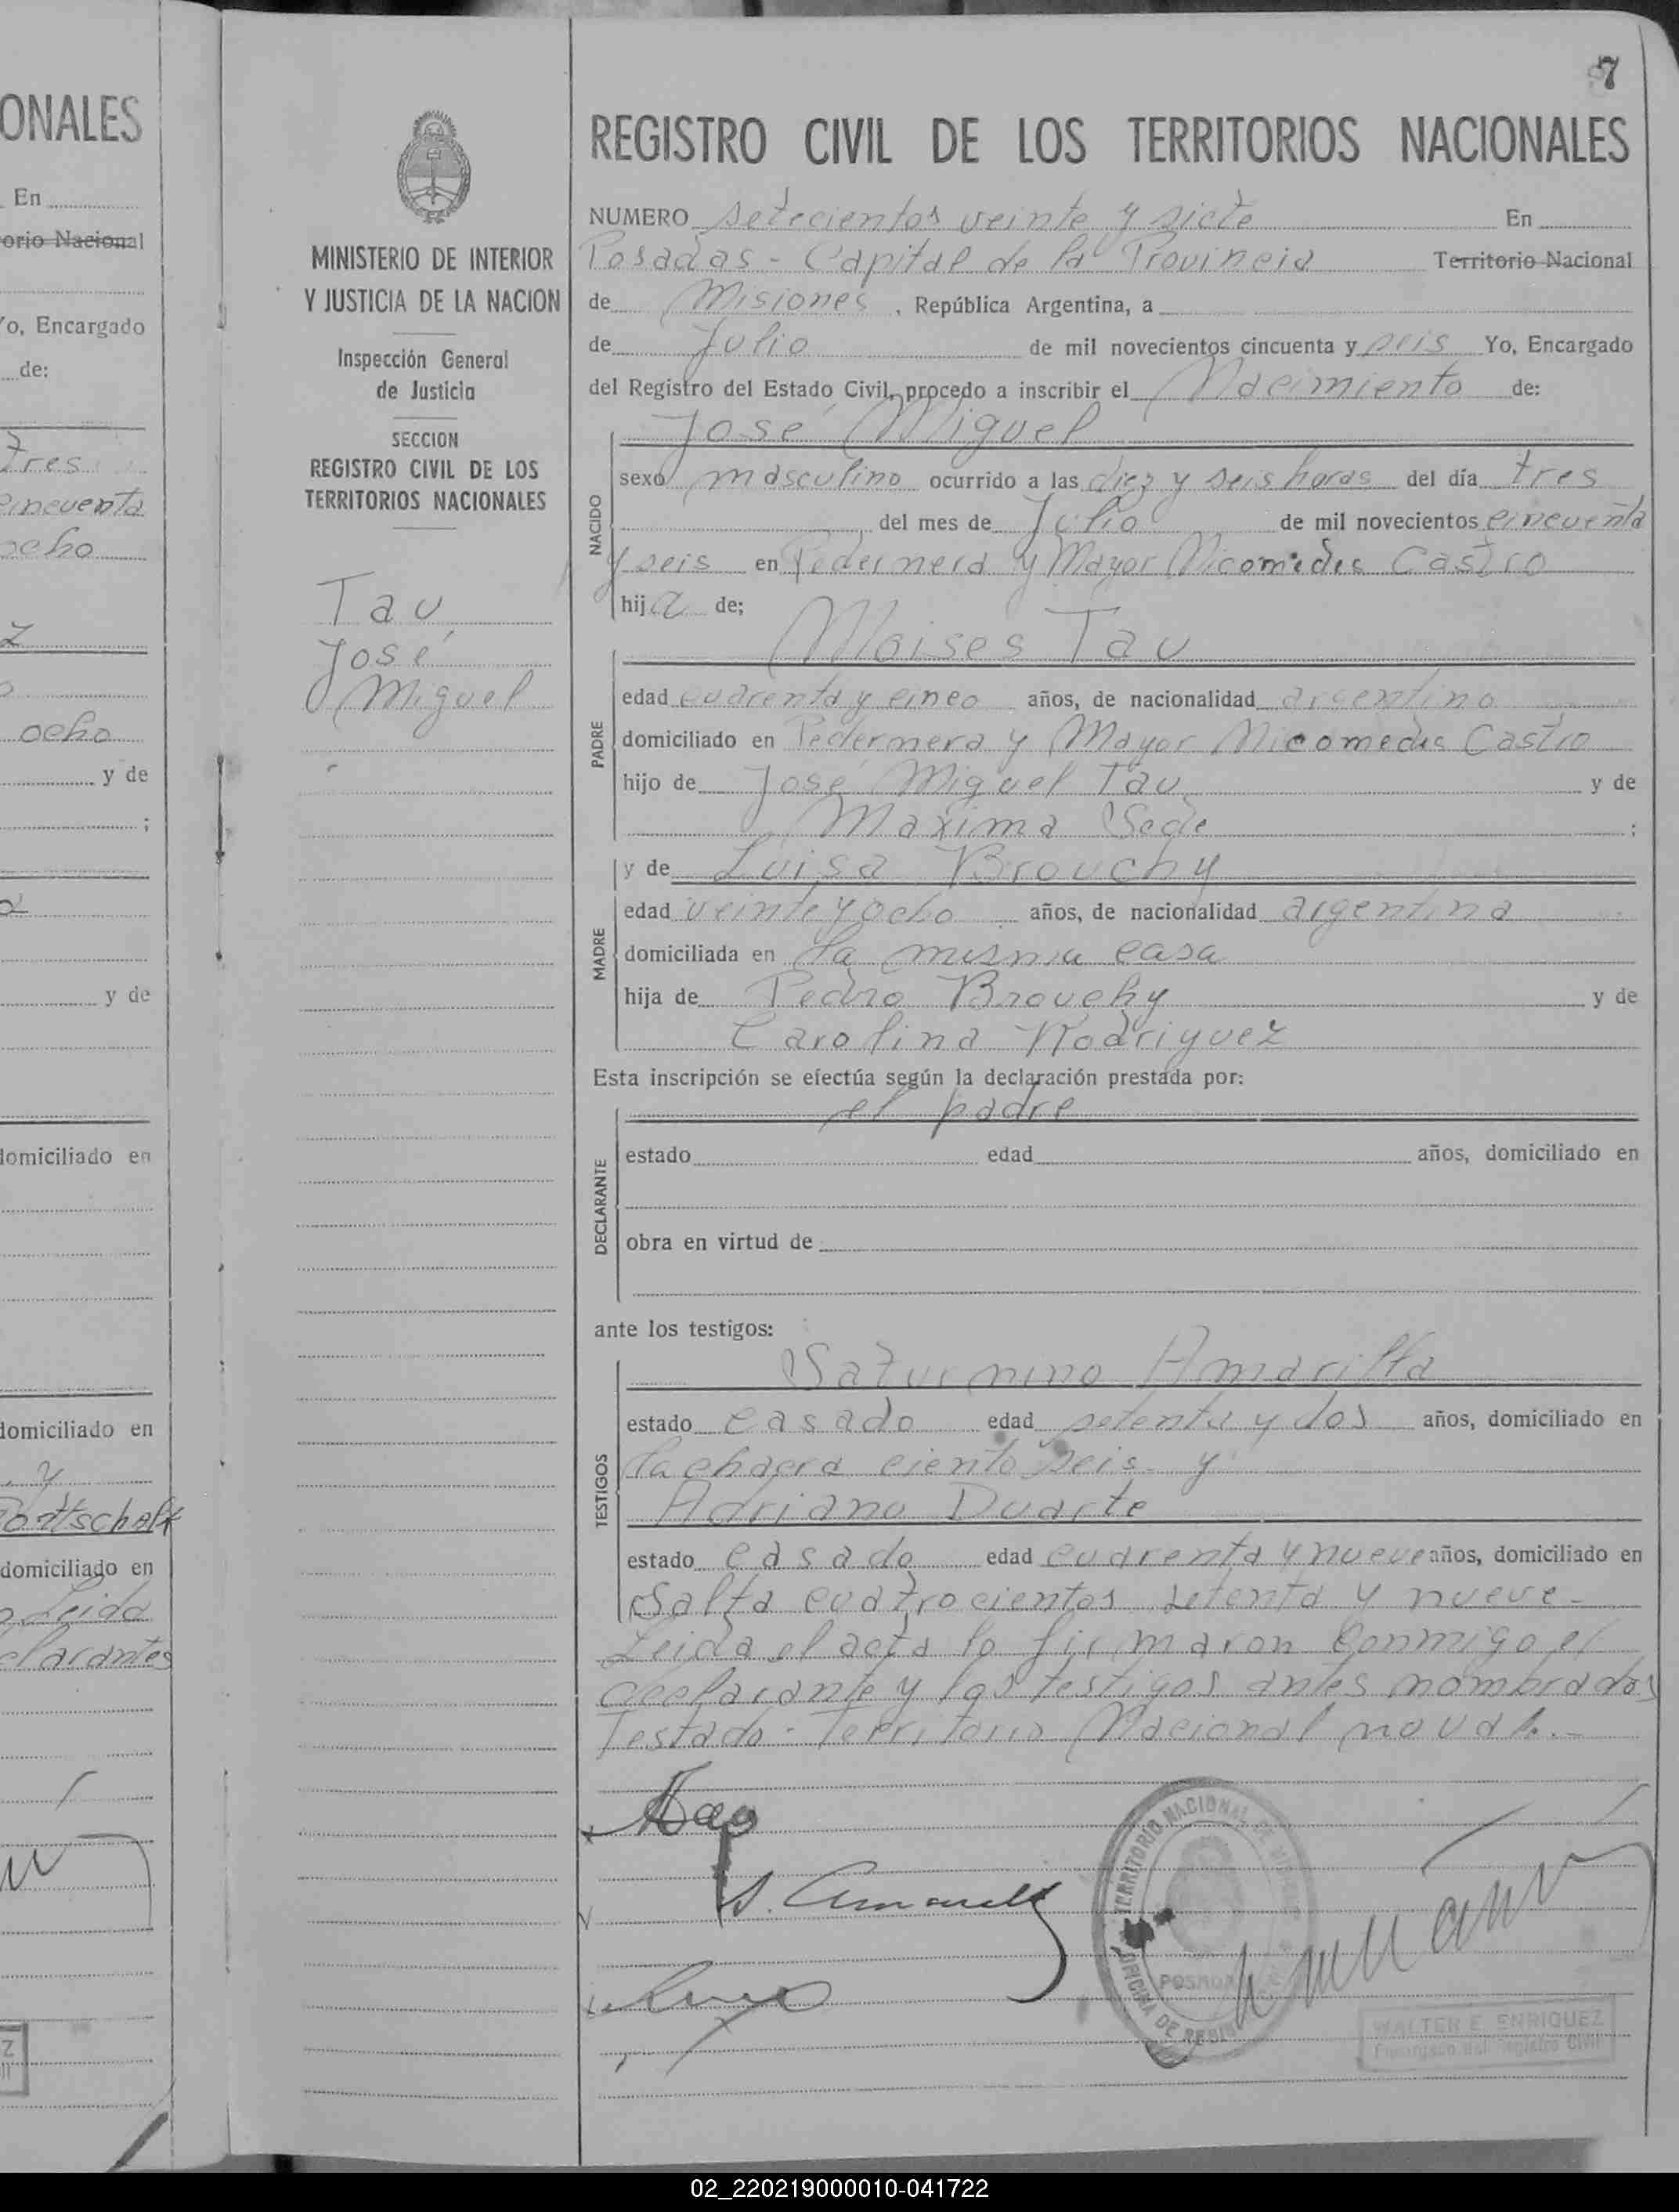 ONALES
En
orio Nacional
Yo, Encargado
de:
tres
cincuenta
ocho
ocho
y de
;
y de
domiciliado en
domiciliado en
y
domiciliado en
Leida
clarantes
MINISTERIO DE INTERIOR
Y JUSTICIA DE LA NACION
Inspección General
de Justicia
SECCION
REGISTRO CIVIL DE LOS
TERRITORIOS NACIONALES
Tau,
José
Miguel
7
REGISTRO CIVIL DE LOS TERRITORIOS NACIONALES
NUMERO setecientos veinte y siete En
Posadas - Capital de la Provincia Territorio Nacional
de Misiones, República Argentina, a
de Julio de mil novecientos cincuenta y seis Yo, Encargado
del Registro del Estado Civil, procedo a inscribir el Nacimiento de:
José Miguel
NACIDO
sexo masculino ocurrido a las diez y seis horas del día tres
del mes de Julio de mil novecientos cincuenta
y seis en Pedernera y Mayor Nicomedes Castro
hijo de;
Moises Tau
PADRE
edad cuarenta y cinco años, de nacionalidad argentino
domiciliado en Pedernera y Mayor Nicomedes Castro
hijo de José Miguel Tau y de
Maxima Sede ;
y de Luisa Brouchy
MADRE
edad veinte y ocho años, de nacionalidad argentina
domiciliada en la misma casa
hija de Pedro Brouchy y de
Carolina Rodriguez
Esta inscripción se efectúa según la declaración prestada por:
el padre
DECLARANTE
estado edad años, domiciliado en
obra en virtud de
ante los testigos:
Saturnino Amarilla
TESTIGOS
estado casado edad setenta y dos años, domiciliado en
la chacra ciento seis y
Adriano Duarte
estado casado edad cuarenta y nueve años, domiciliado en
Salta cuatrocientos setenta y nueve -
Leida el acta la firmaron conmigo el
declarante y los testigos antes nombrados
Testado - Territorio Nacional no vale. -
S. Amarilla
TERRITORIO NACIONAL DE MISIONES
POSADAS
OFICINA DE REGISTRO
WALTER E. ENRIQUEZ
Encargado del Registro Civil
02_220219000010-041722